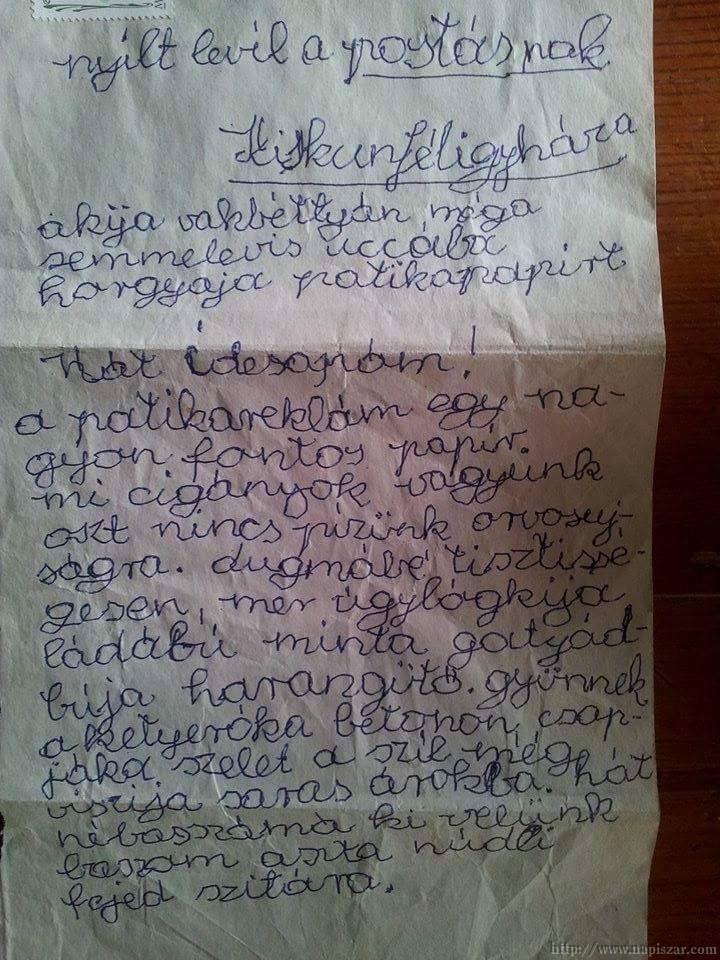 nyílt levíl a postásnak
Kiskunféligyhára
akija vakbéttyán méga
semmelevis uccába
horgyaja patikapapírt
Hát ídesapám!
a patikareklám egy na-
gyon fontos papír.
mi cigányok vagyunk
oszt nincs pízünk orvosej-
ságra. dugmábé tisztissé-
gesen, mer úgylógkija
ládábú minta gatyád-
búja harangütő. gyünnek
aketyeróka betonon, csap-
jáka szelet a szíl még
viszija saras árokba. hát
nébasszámá ki velünk
baszom aszta núdli
fejed szitára.
http://www.napiszar.com